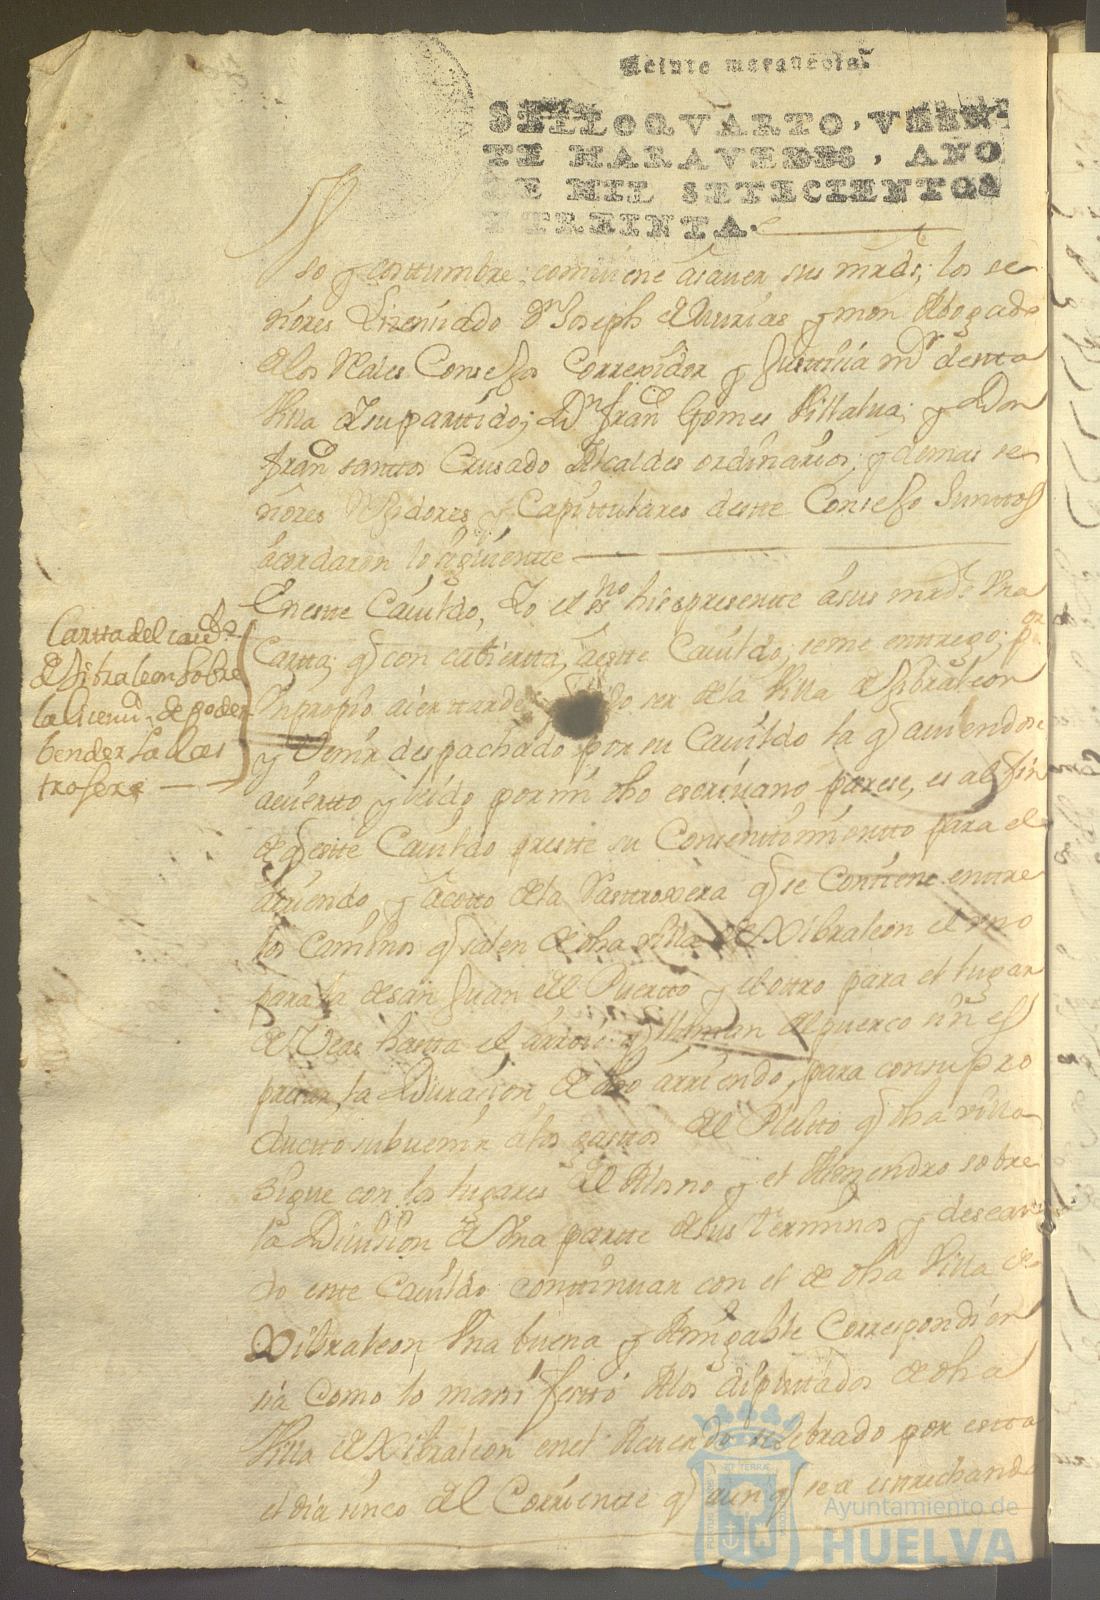 Veinte maravedis.
SELLO QVARTO, VEIN-
TE MARAVEDIS, AÑO
DE MIL SETECIENTOS
Y TREINTA.
so y costtumbre, combiene ásaver sus mrds, los se
ñores Lizenciado Dn Joseph de Asurias y mon Abogado
de los Rales Consejos Corregidor y Justicia mr destta
Villa y su parttido; Dn Franco Gomes Villalva; y Don
Franco santtos Crusado Alcaldes ordinarios; y demas se
ñores Rexidores y Capittulares destte Consejo Junttos
acordaron lo siguientte
En estte Cavildo, Yo el esno hise presentte ásus mrds Vna
Cartta, q con cubiertta, áestte Cavildo, seme enttrego; por
Vn propio ser de la Villa de Gibraleon
y Venir despachado por su Cavildo la q aviendose
avierto y leido por mi dho escrivano parese, es al fin
de q estte Cavildo prestte su Consenttimientto para el
arriendo y acotto de la Rasttroxera q se conttiene enttre
los Caminos q salen de dha villa de Xibraleon el uno
para la de San Juan del Puertto y el ottro para el lugar
de Veas hastta el arroio q llaman
la Durasion de dho arriendo, para con su pro
ductto subvenir a los gasttos del Pleitto q dha villa
sigue con los lugares del Alosno y el Almendro sobre
la Division de Vna partte de sus terminos y desean
do estte Cavildo conttinuar con el de dha Villa de
Xibraleon Vna buena y Amigable Correspondien
sia como lo manifesttó a los diputtados de dha
Villa de Xibraleon en el Acuerdo selebrado por estta
el dia sinco del Corrientte q aunq sea esttrechando
Cartta del cavdo
de Gibraleon sobre
la licenca de poder
bender la Ras
trojera
Ayuntamiento de
HUELVA